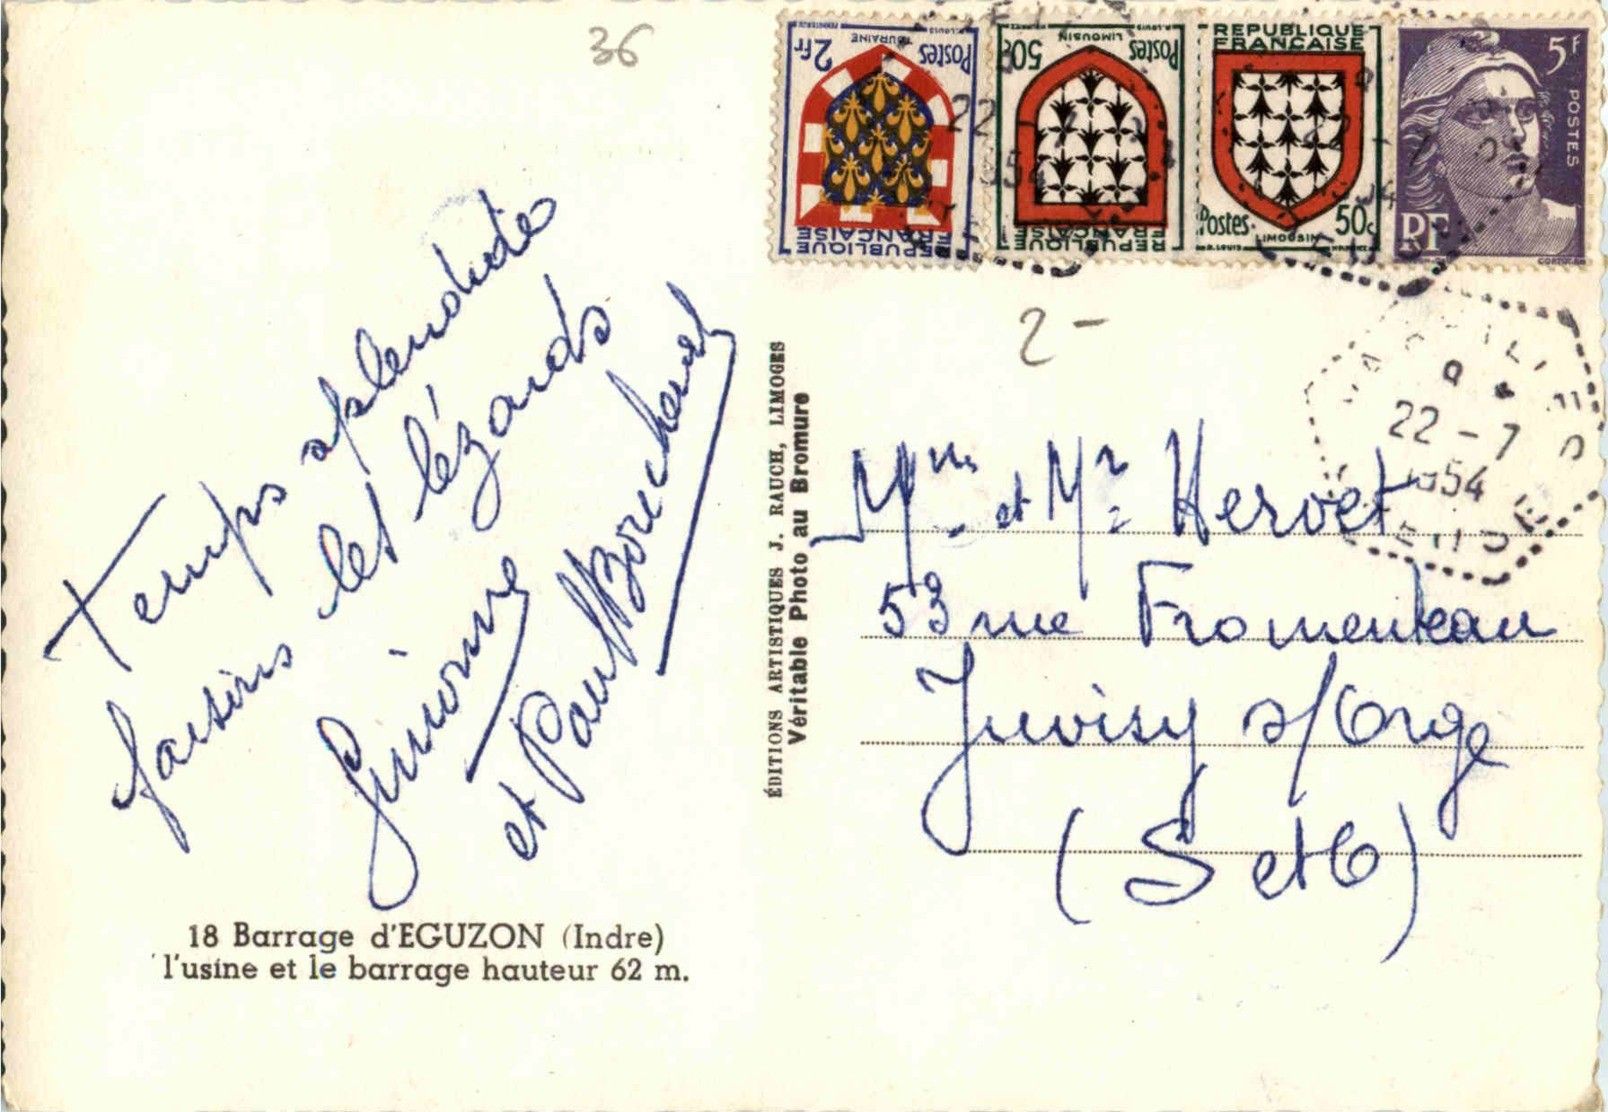 36
2Fr
Postes
TOURAINE
REPUBLIQUE
FRANÇAISE
50c
Postes
LIMOUSIN
REPUBLIQUE
FRANÇAISE
REPUBLIQUE
FRANÇAISE
Postes
50c
LIMOUSIN
5F
POSTES
RF
22-7
1954
2-
Temps splendide
faisons les lézards
Simonne
et Paul
18 Barrage d'EGUZON (Indre)
l'usine et le barrage hauteur 62 m.
ÉDITIONS ARTISTIQUES J. RAUCH, LIMOGES
Véritable Photo au Bromure
Mme et Mr Hervet
53 rue Fromenteau
Juvisy s/Orge
(S et O)